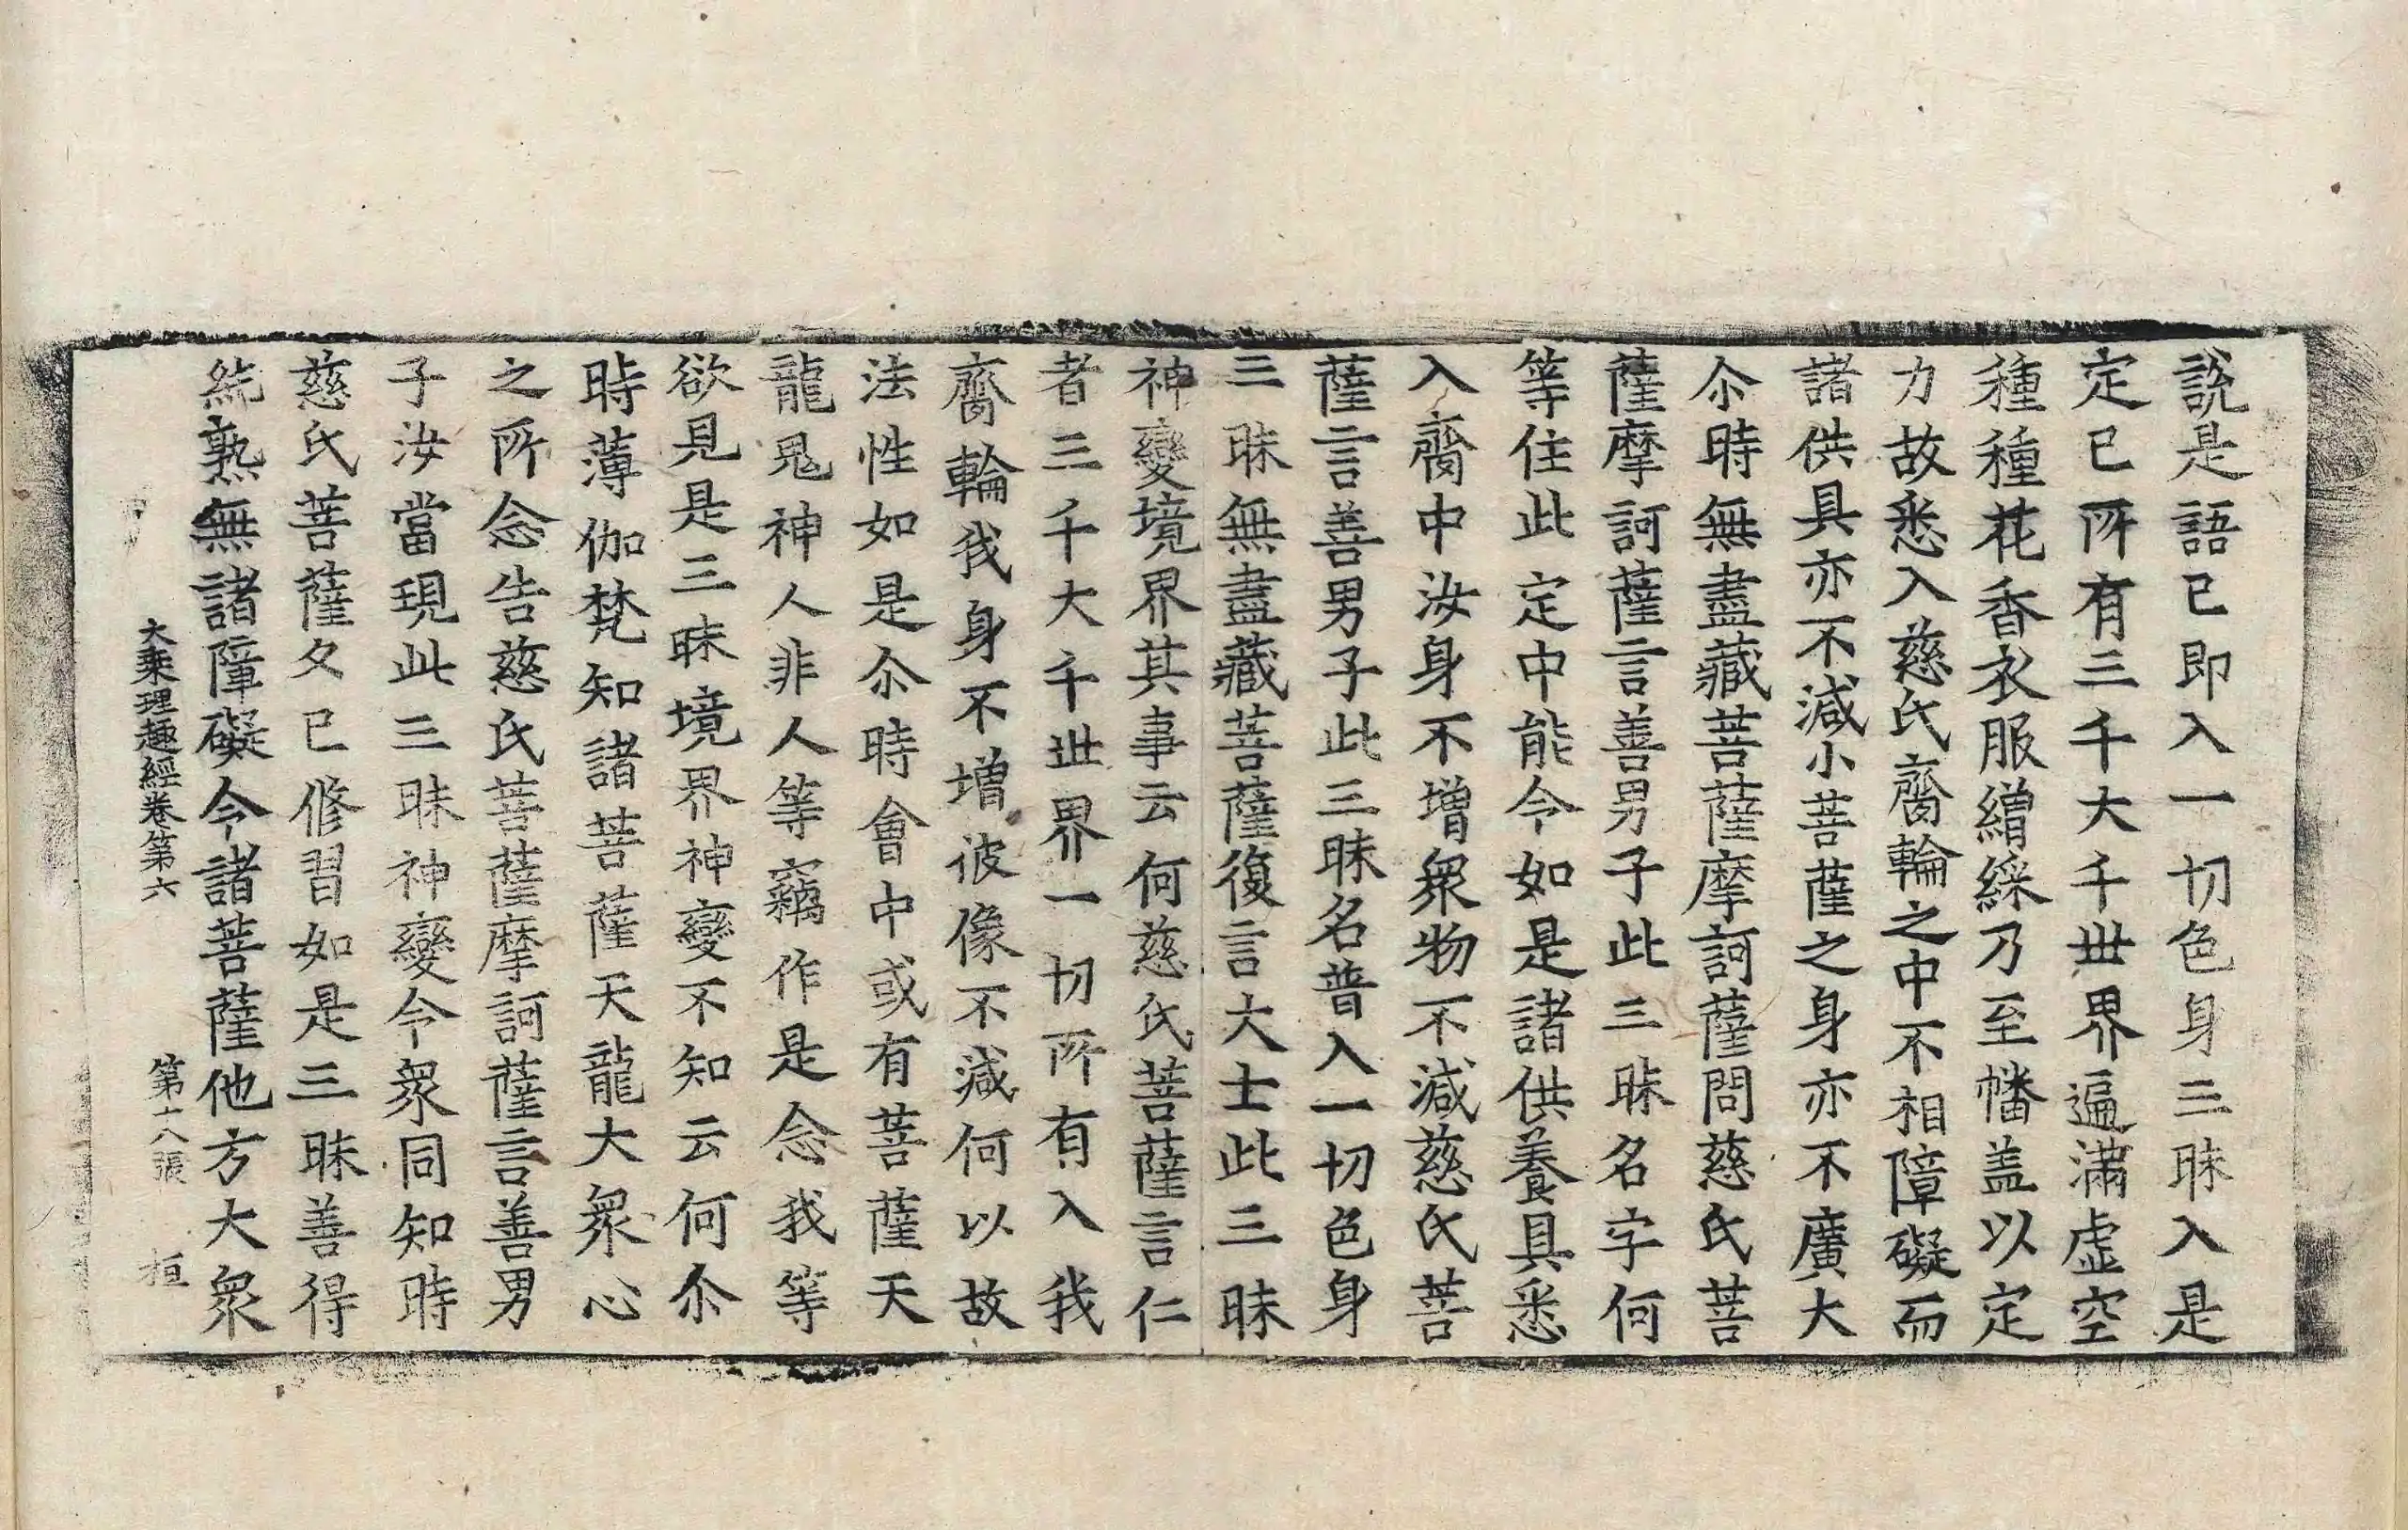 說是語已即入一切色身三昧入是
定已所有三千大千世界遍滿虛空
種種花香衣服繒綵乃至幡盖以定
力故悉入慈氏齎輪之中不相障礙而
諸供具亦不減小菩薩之身亦不廣大
尒時無盡藏菩薩摩訶薩問慈氏菩
薩摩訶薩言善男子此三昧名字何
等住此定中能令如是諸供養具悉
入齎中汝身不增衆物不減慈氏菩
薩言善男子此三昧名普入一切色身
三昧無盡藏菩薩復言大士此三昧
神變境界其事云何慈氏菩薩言仁
者三千大千世界一切所有入我
齎輪我身不增彼像不減何以故
法性如是尒時會中或有菩薩天
龍鬼神人非人等竊作是念我等
欲見是三昧境界神變不知云何尒
時薄伽梵知諸菩薩天龍大衆心
之所念告慈氏菩薩摩訶薩言善男
子汝當現此三昧神變令衆同知時
慈氏菩薩久已修習如是三昧善得
純熟無諸障礙令諸菩薩他方大衆
大乘理趣經卷第六　第十八張　桓